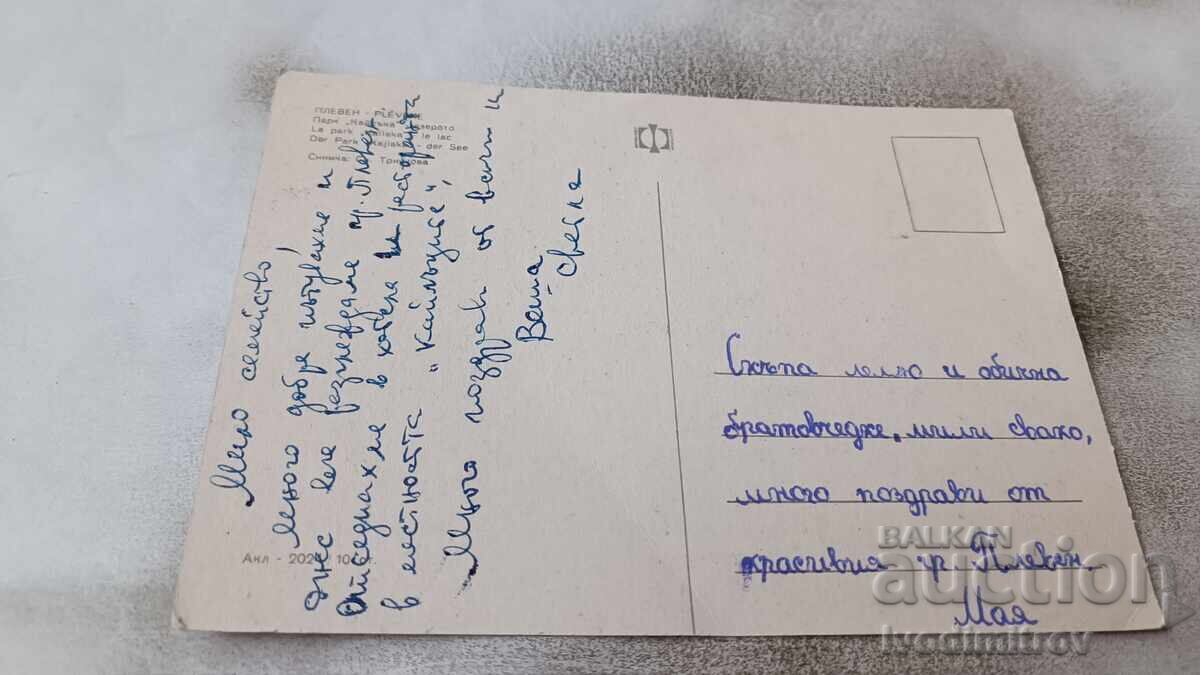 ПЛЕВЕН - PLÉVÈNE
Парк „Кайлъка" - езерото
La park "Kaileka" - le lac
Der Park "Kajlaka" - der See
Снимка: Трифонова
Акл - 2020 10
Мило семейство
Много добре пътувахме и
днес вече разглеждаме гр. Плевен
Отседнахме в хотела на ресторанта
в местността "Кайлъците",
Много поздрави от всички
Ваша
Светла
Скъпа лельо и обична
братовчедке, мили свако,
много поздрави от
красивия гр Плевен.
Мая
BALKAN
auction
ivodimitrov